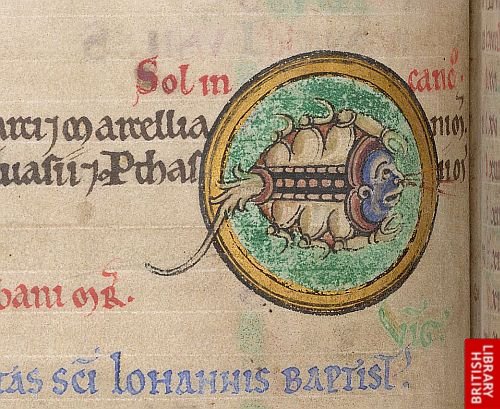 Sol in canc̄
arcij marcellia nioꝝ
uasii ⁊ Pthas nioꝝ
bani mR̄.
Vig̃
tas sc̄i Iohannis baptist̃
BRITISH LIBRARY